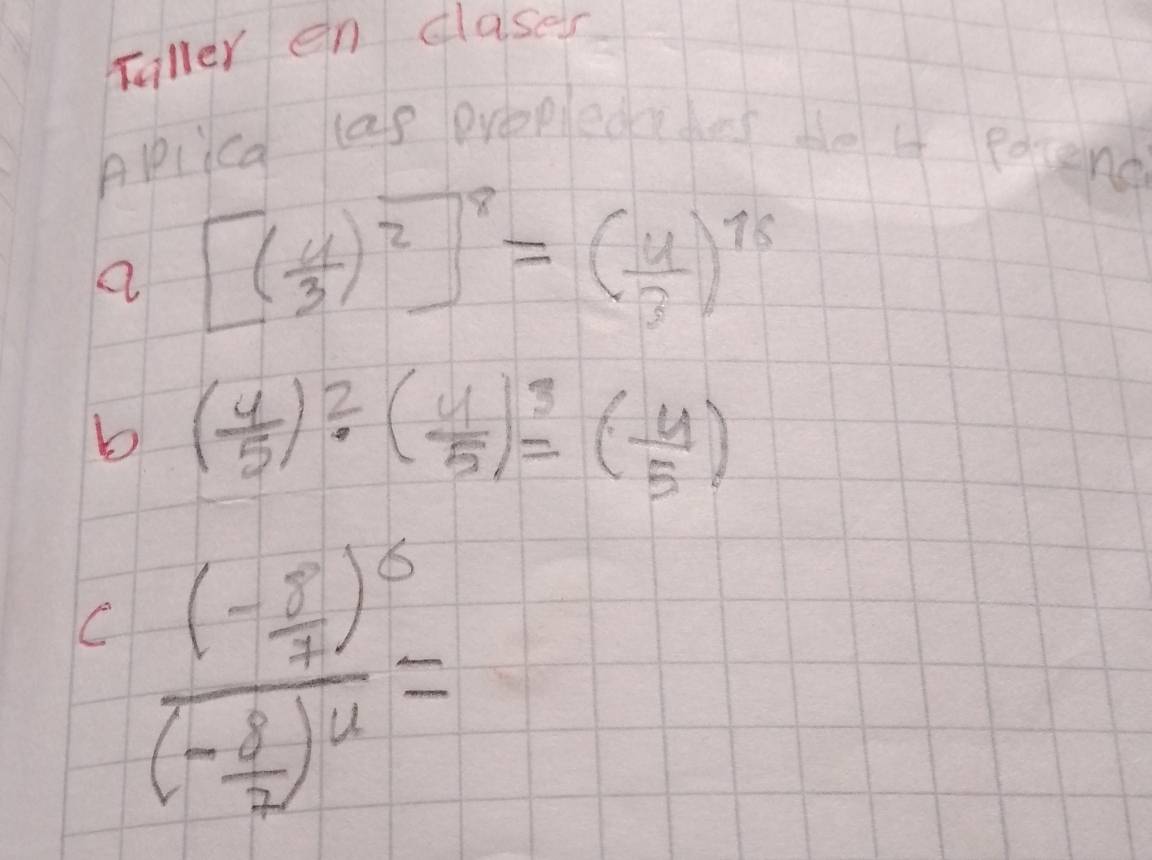 Taller en clases
Aplica las propiedades de la potenc
a [(4/3)^2]^8 = (4/3)^16
b (4/5)^2 · (4/5)^3 = (4/5)
c (-8/7)^6 / (-8/7)^4 =